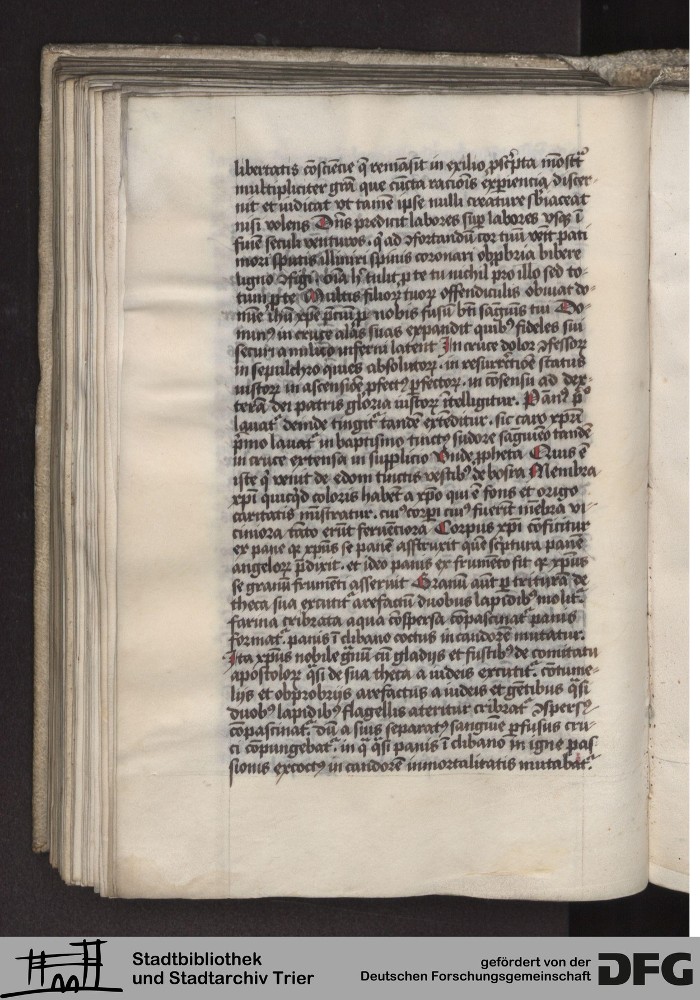 libertatis cōsciēcie q̄ remāsit in exilio
multipliciter grām que cūcta racionis experiencia discer-
nit et iudicat vt tamē ipse nulli creature sbiaceat
nisi volens Dn̄s predicit labores sup̄ labores vsqꝫ ī
finē seculi venturos . qꝰ ad ꝯfortandū cor tuū venit pati
mori sputis illiniri spinis coronari obprobria bibere
ligno ꝯfigi . oīa h̄ tulit ꝓ te tu nichil pro illo sed to-
tum ꝓ te Multis filioꝝ tuoꝝ offendiculis obuiat do-
mīe ihū xp̄e ꝓ nobis fusū sanguis tui Do-
minꝰ in cruce alas suas expandit quibꝰ fideles sui
securi a miluo inferni latent In cruce dolor ꝯfessoꝝ
in sepulchro quies absolutoꝝ . in resurrectiōe status
iustoꝝ in ascensiōe ꝑfectꝰ ꝑfectoꝝ . in cōsensu ad dex-
terā dei patris gloria iustoꝝ ītelligitur . Pānꝰ pͥꝰ
lauat᷑ deinde tingit᷑ tandē extēditur . sic caro xp̄i
pͥmo lauat᷑ in baptismo tinctꝰ sudore sāguīeo tandē
in cruce extensa in supplicio Vnde ꝓpheta Quis ē
iste qͥ venit de edom tinctis vestibꝰ de bosra Membra
xp̄i quicqͥd coloris habēt a xp̄o qui ē fons et origo
caritatis mīstratur . cuiꝰ corpͥ cuiꝰ fuerīt mēbra vi-
ciniora tāto erūt feruēciora Corpus xp̄i cōficitur
ex pane qꝛ xp̄us se panē asstruxit quē scriptura panē
angeloꝝ p̄dixit . et ideo panis ex frumēto fit qꝛ xp̄us
se granū frumēti asseruit Granū aūt ꝑ tritura de
theca sua excutit᷑ arefactū duobus lapidibꝰ molit᷑
farina cribrata aqua cōspersa cōpascinat᷑ panis
format᷑ . panis ī clibano coctus in candorē mutatur .
Ita xp̄us nobile gͣnū cū gladijs et fustibꝰ de comitatu
apostoloꝝ qͣsi de sua theca a iudeis excutit᷑ . cōtume-
lijs et obprobrijs arefactus a iudeis et gētibus qͣsi
duobꝰ lapidibꝰ flagellis ateritur cribrat᷑ ꝯspersꝰ
cōpascinat᷑ . dū a suis separatꝰ sanguīe ꝑfusus cru-
ci cōpungebat᷑ . in qͣ qͣsi panis ī clibano in igne pas-
sionis excoctꝰ in candorē inmortalitatis mutabat᷑ .
Stadtbibliothek
und Stadtarchiv Trier
gefördert von der
Deutschen Forschungsgemeinschaft
DFG